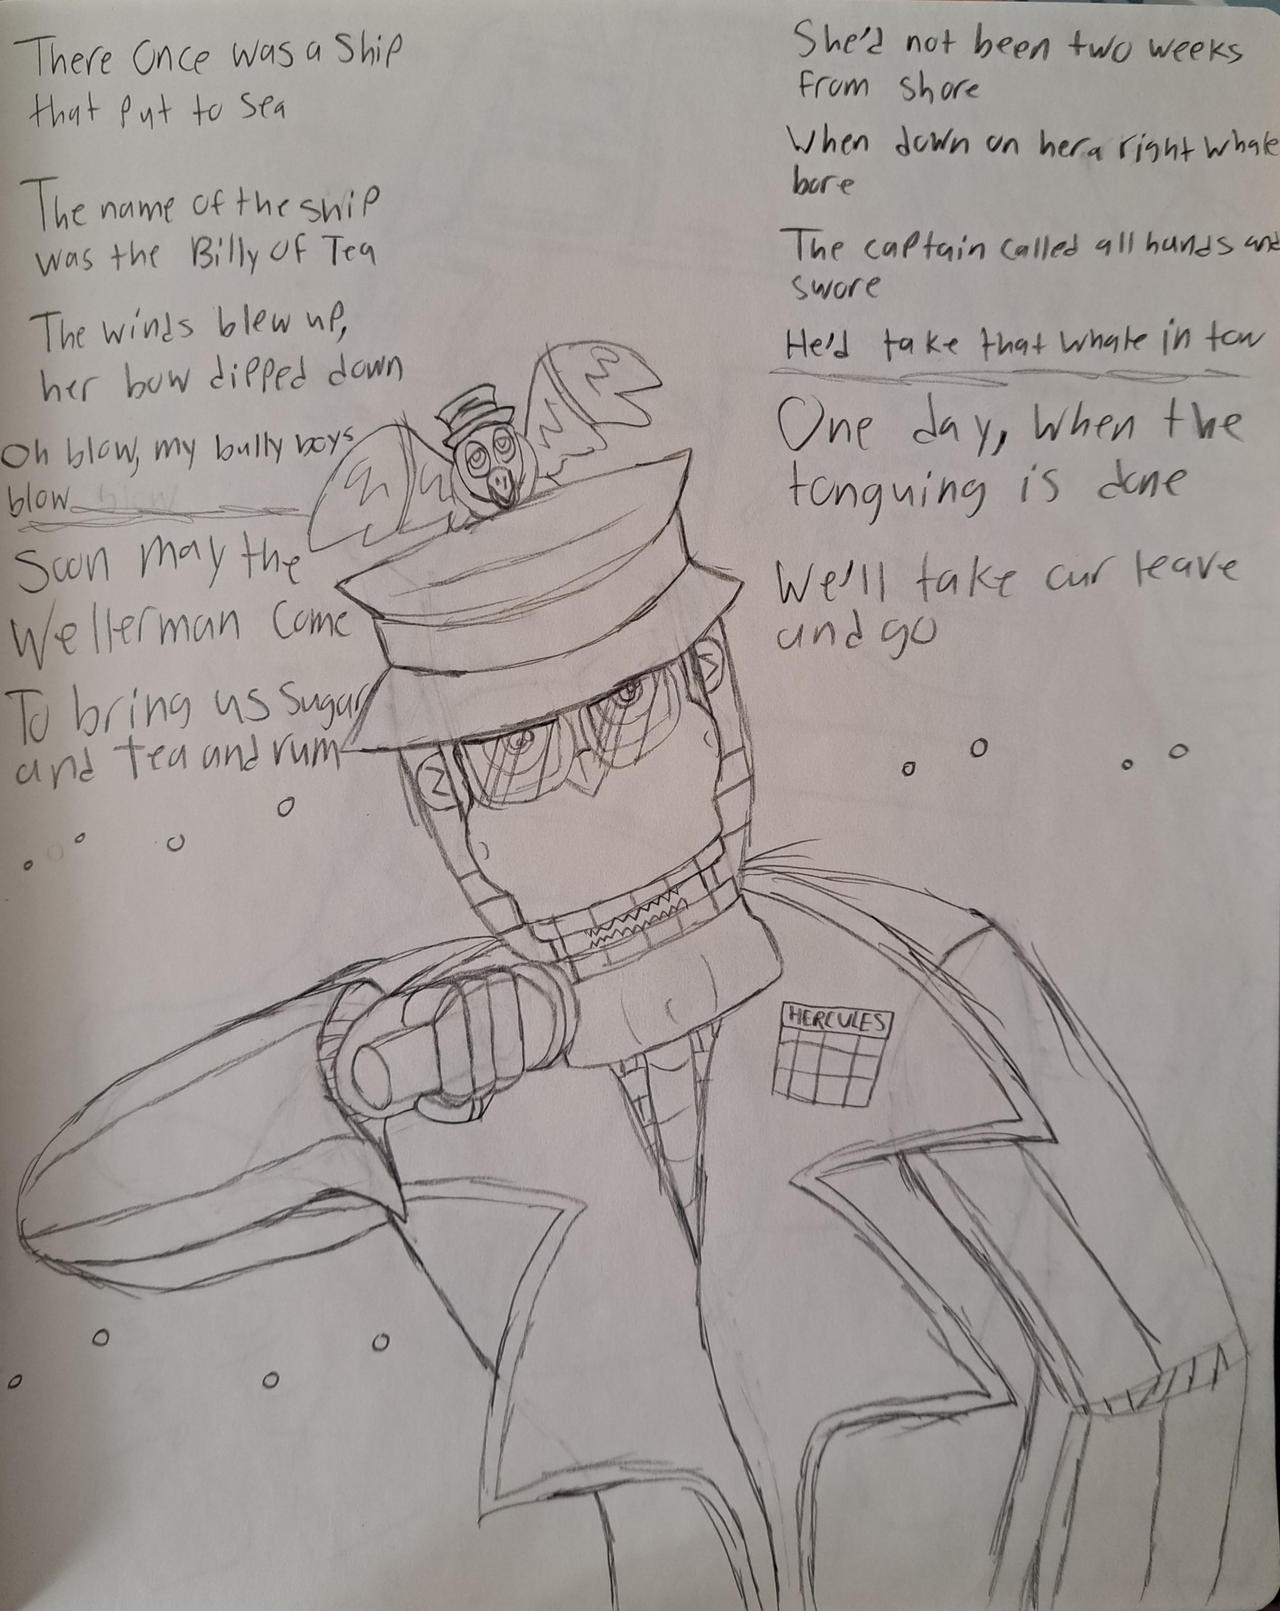 There Once was a Ship
that put to Sea
The name of the ship
was the Billy Of Tea
The winds blew up,
her bow dipped down
Oh blow, my bully boys
blow
Soon may the
Wellerman Come
To bring us Sugar
and tea and rum
She'd not been two weeks
from shore
When down on her a right whale
bore
The captain called all hands and
swore
He'd take that whale in tow
One day, when the
tonguing is done
We'll take our leave
and go
HERCULES